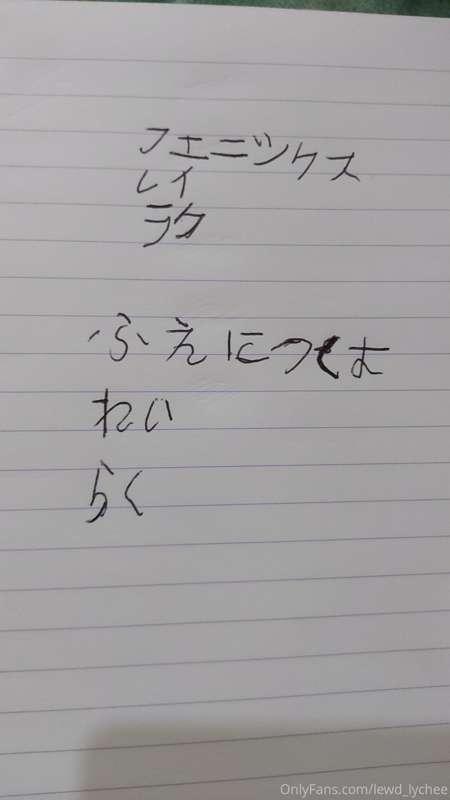 フェニックス
レイ
ラク
ふえにつくす
れい
らく
OnlyFans.com/lewd_lychee